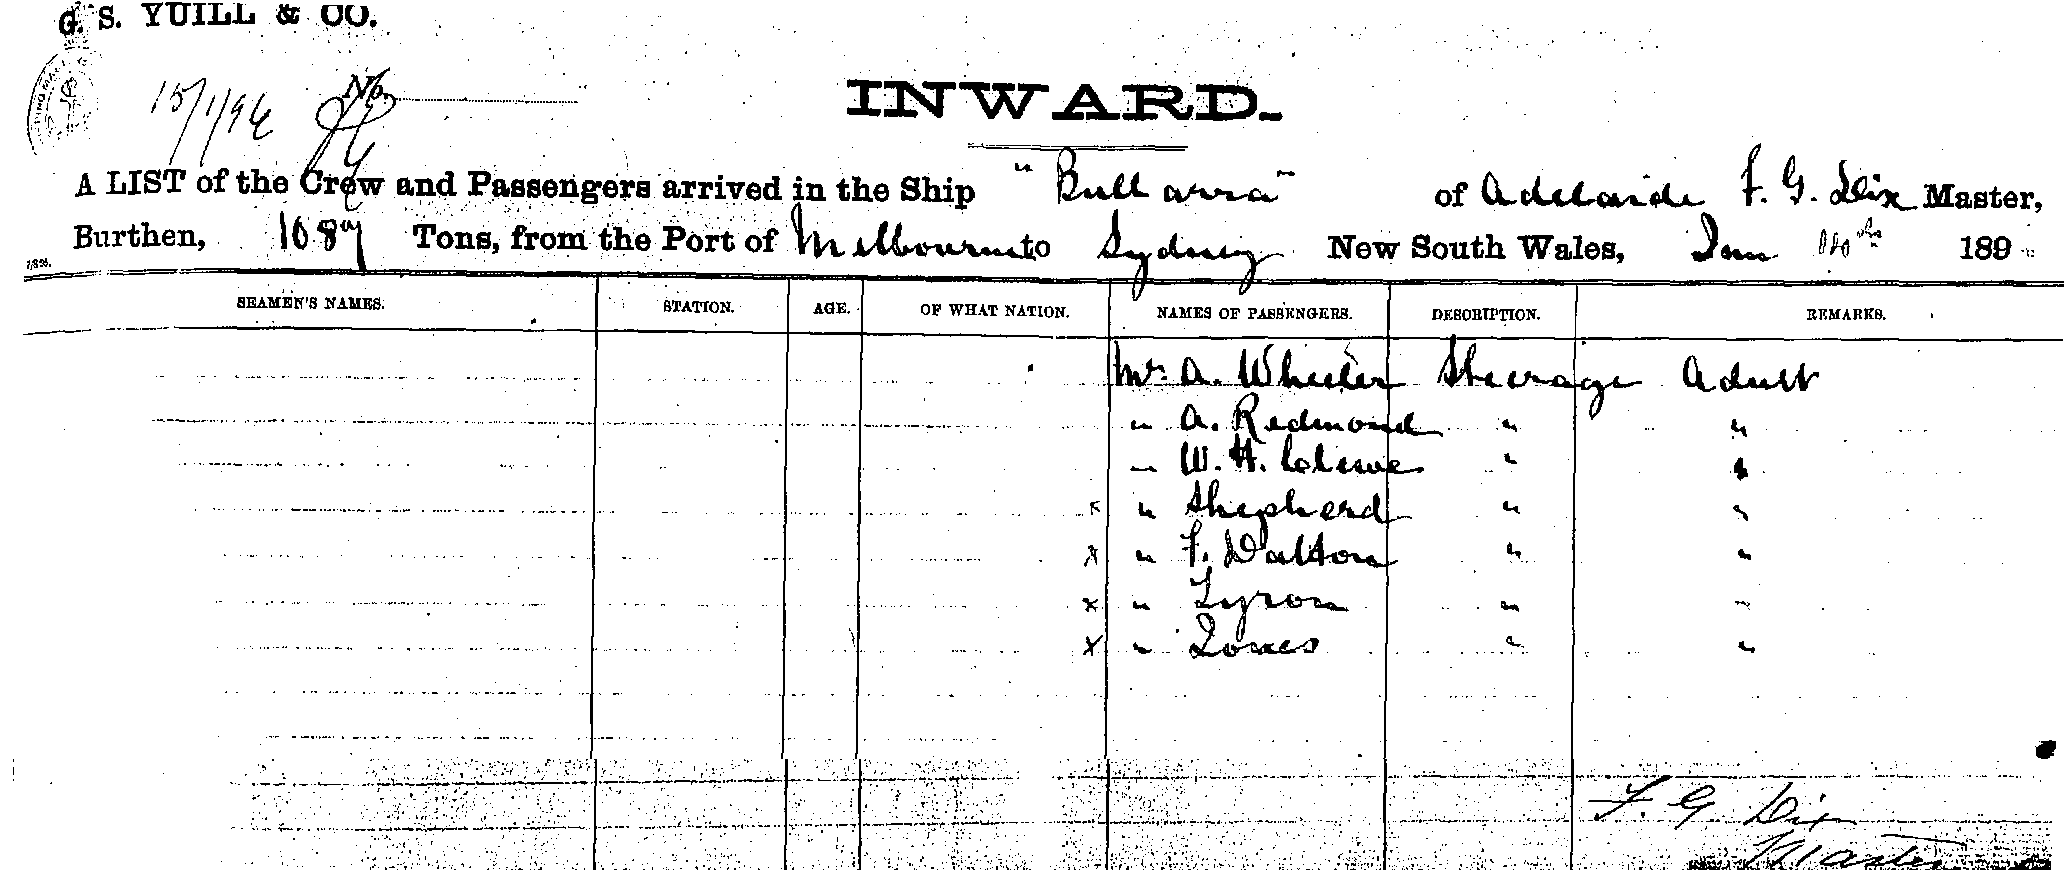 G. S. YUILL & CO.
15/1/96 No.
INWARD.
A LIST of the Crew and Passengers arrived in the Ship "Bullarra" of Adelaide F. G. Dix Master,
Burthen, 1087 Tons, from the Port of Melbourne to Sydney New South Wales, Jan 189
SEAMEN'S NAMES. STATION. AGE. OF WHAT NATION. NAMES OF PASSENGERS. DESCRIPTION. REMARKS.
Mr. A. Wheeler Steerage Adult
" A. Redmond " "
" W. H. " "
x " Shepherd " "
x " F. Dalton " "
x " Tyron " "
x " Jones " "
F. G. Dix
Master